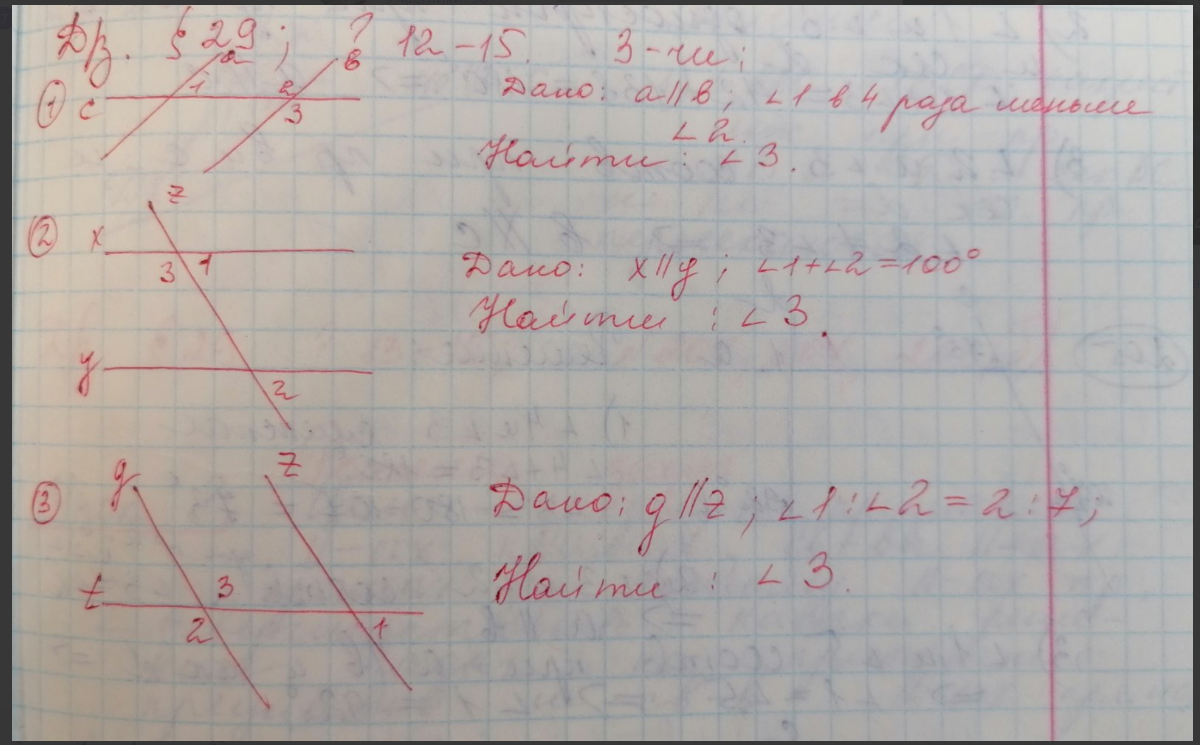 Дз. § 29; ? 12-15. 3-чи;
① c a 1 2 b 3
Дано: a∥b; ∠1 в 4 раза меньше
∠2.
Найти: ∠3.
② x z 3 1 y 2
Дано: x∥y; ∠1+∠2=100°
Найти: ∠3.
③ g z t 3 2 1
Дано: g∥z; ∠1:∠2=2:7;
Найти: ∠3.